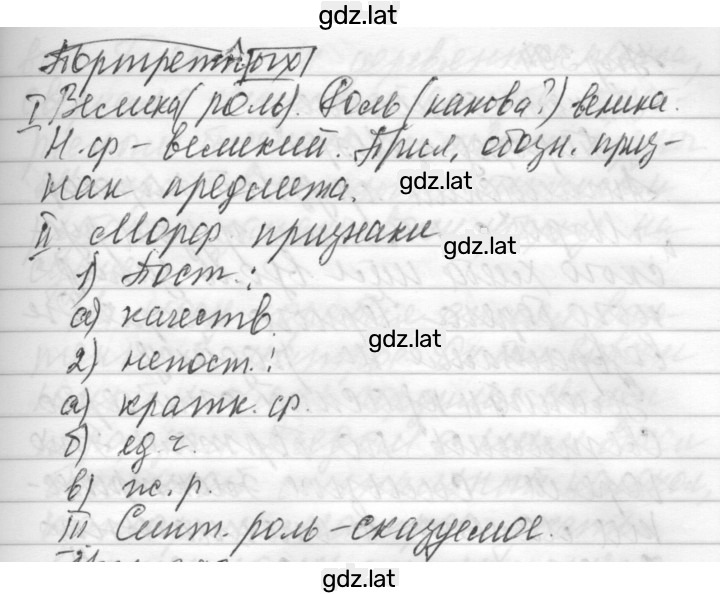 gdz.lat
Портретных
I Велика (роль). Роль (какова?) велика.
Н.ф – великий. Прил, обозн. приз-
нак предмета.
gdz.lat
II. Морф. признаки
gdz.lat
1) Пост.:
а) качеств.
gdz.lat
2) непост.:
а) кратк. ф.
б) ед. ч.
в) ж. р.
III Синт. роль – сказуемое.
gdz.lat